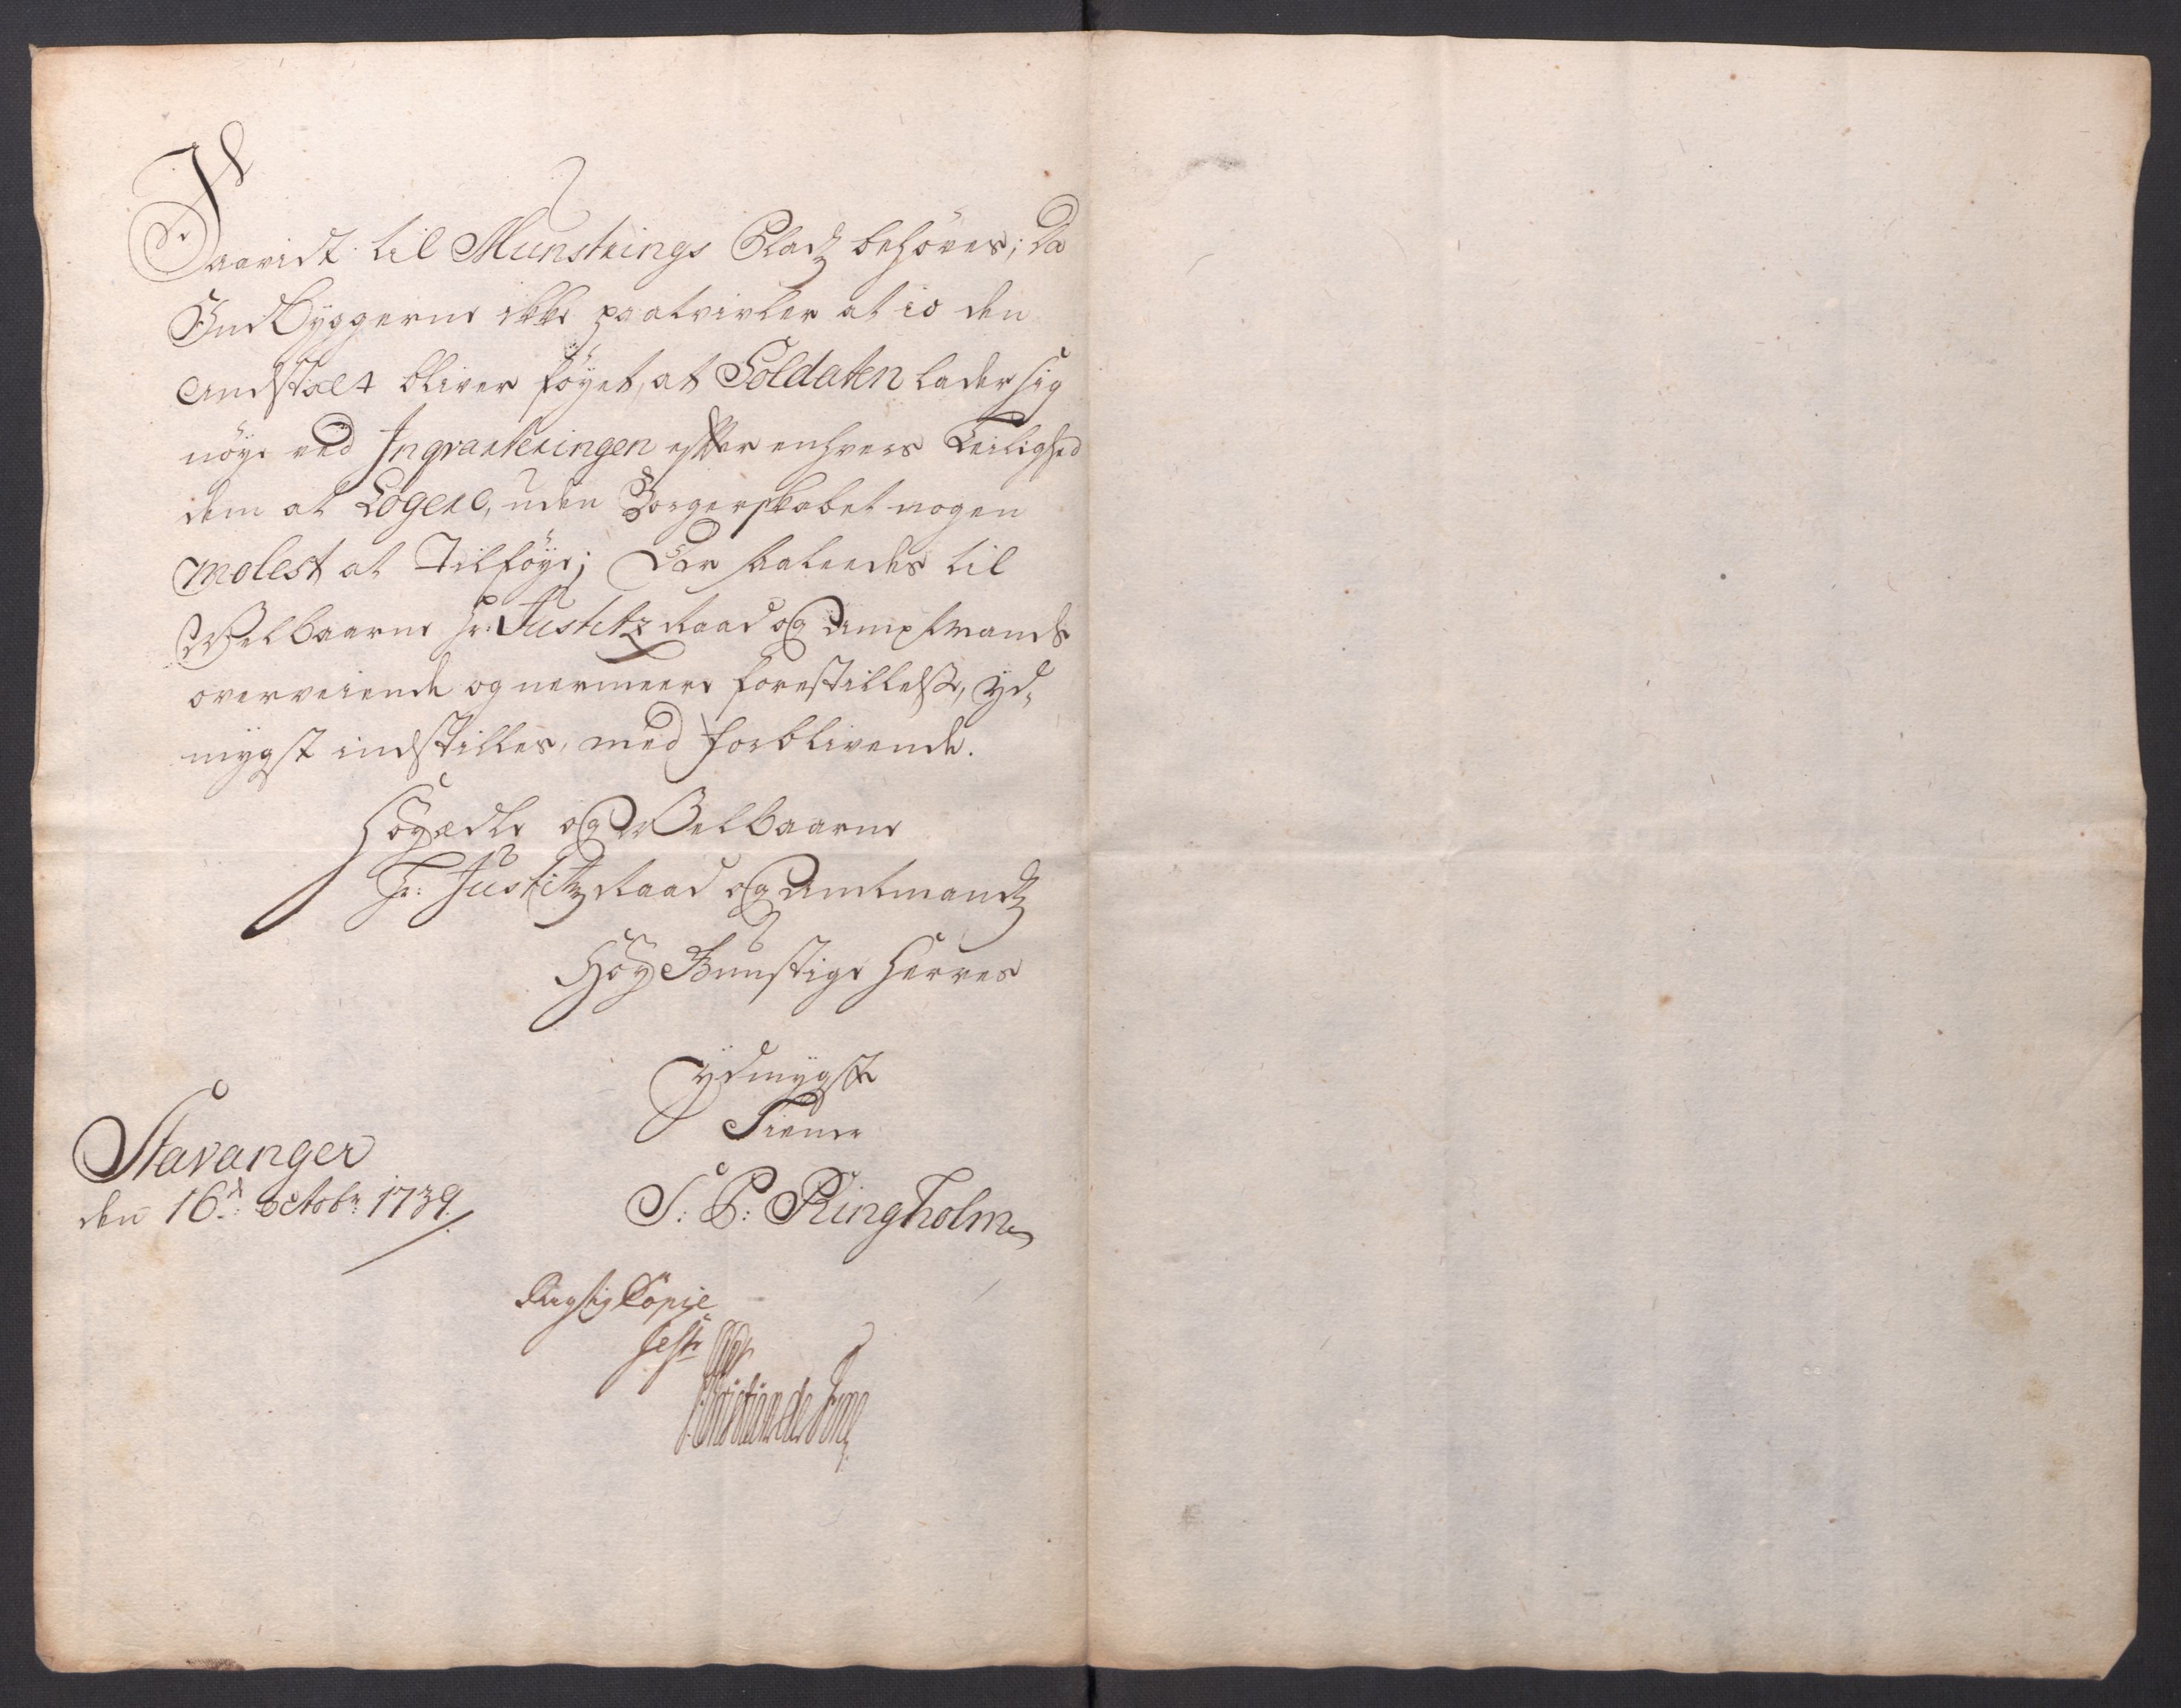 Saavidt til Munstrings Pladz behöves; da
Indbyggerne ikke paatvivler at io den
Andstalt bliver föyet, at Soldaten lader sig
nöye ved Inqvarteringen efter enhvers Leilighed
dem at Logere, uden Borgerskabet nogen
molest at Tilföye; Der saaleedes til
Welbaarne Hr: Justitz Raad og Amptmands
overveiende og nermeere forestillelse, yd„
mygst indstilles, med forblivende.
Höyædle og Welbaarne
Hr: Justitz Raad og Amtmandz
Höy Gunstige Herres
ydmygste
Tiener
Stavanger
den 16.d octobr: 1739.
S: P: Ringholm
Rigtig Copie
Test:
Christian de Fine